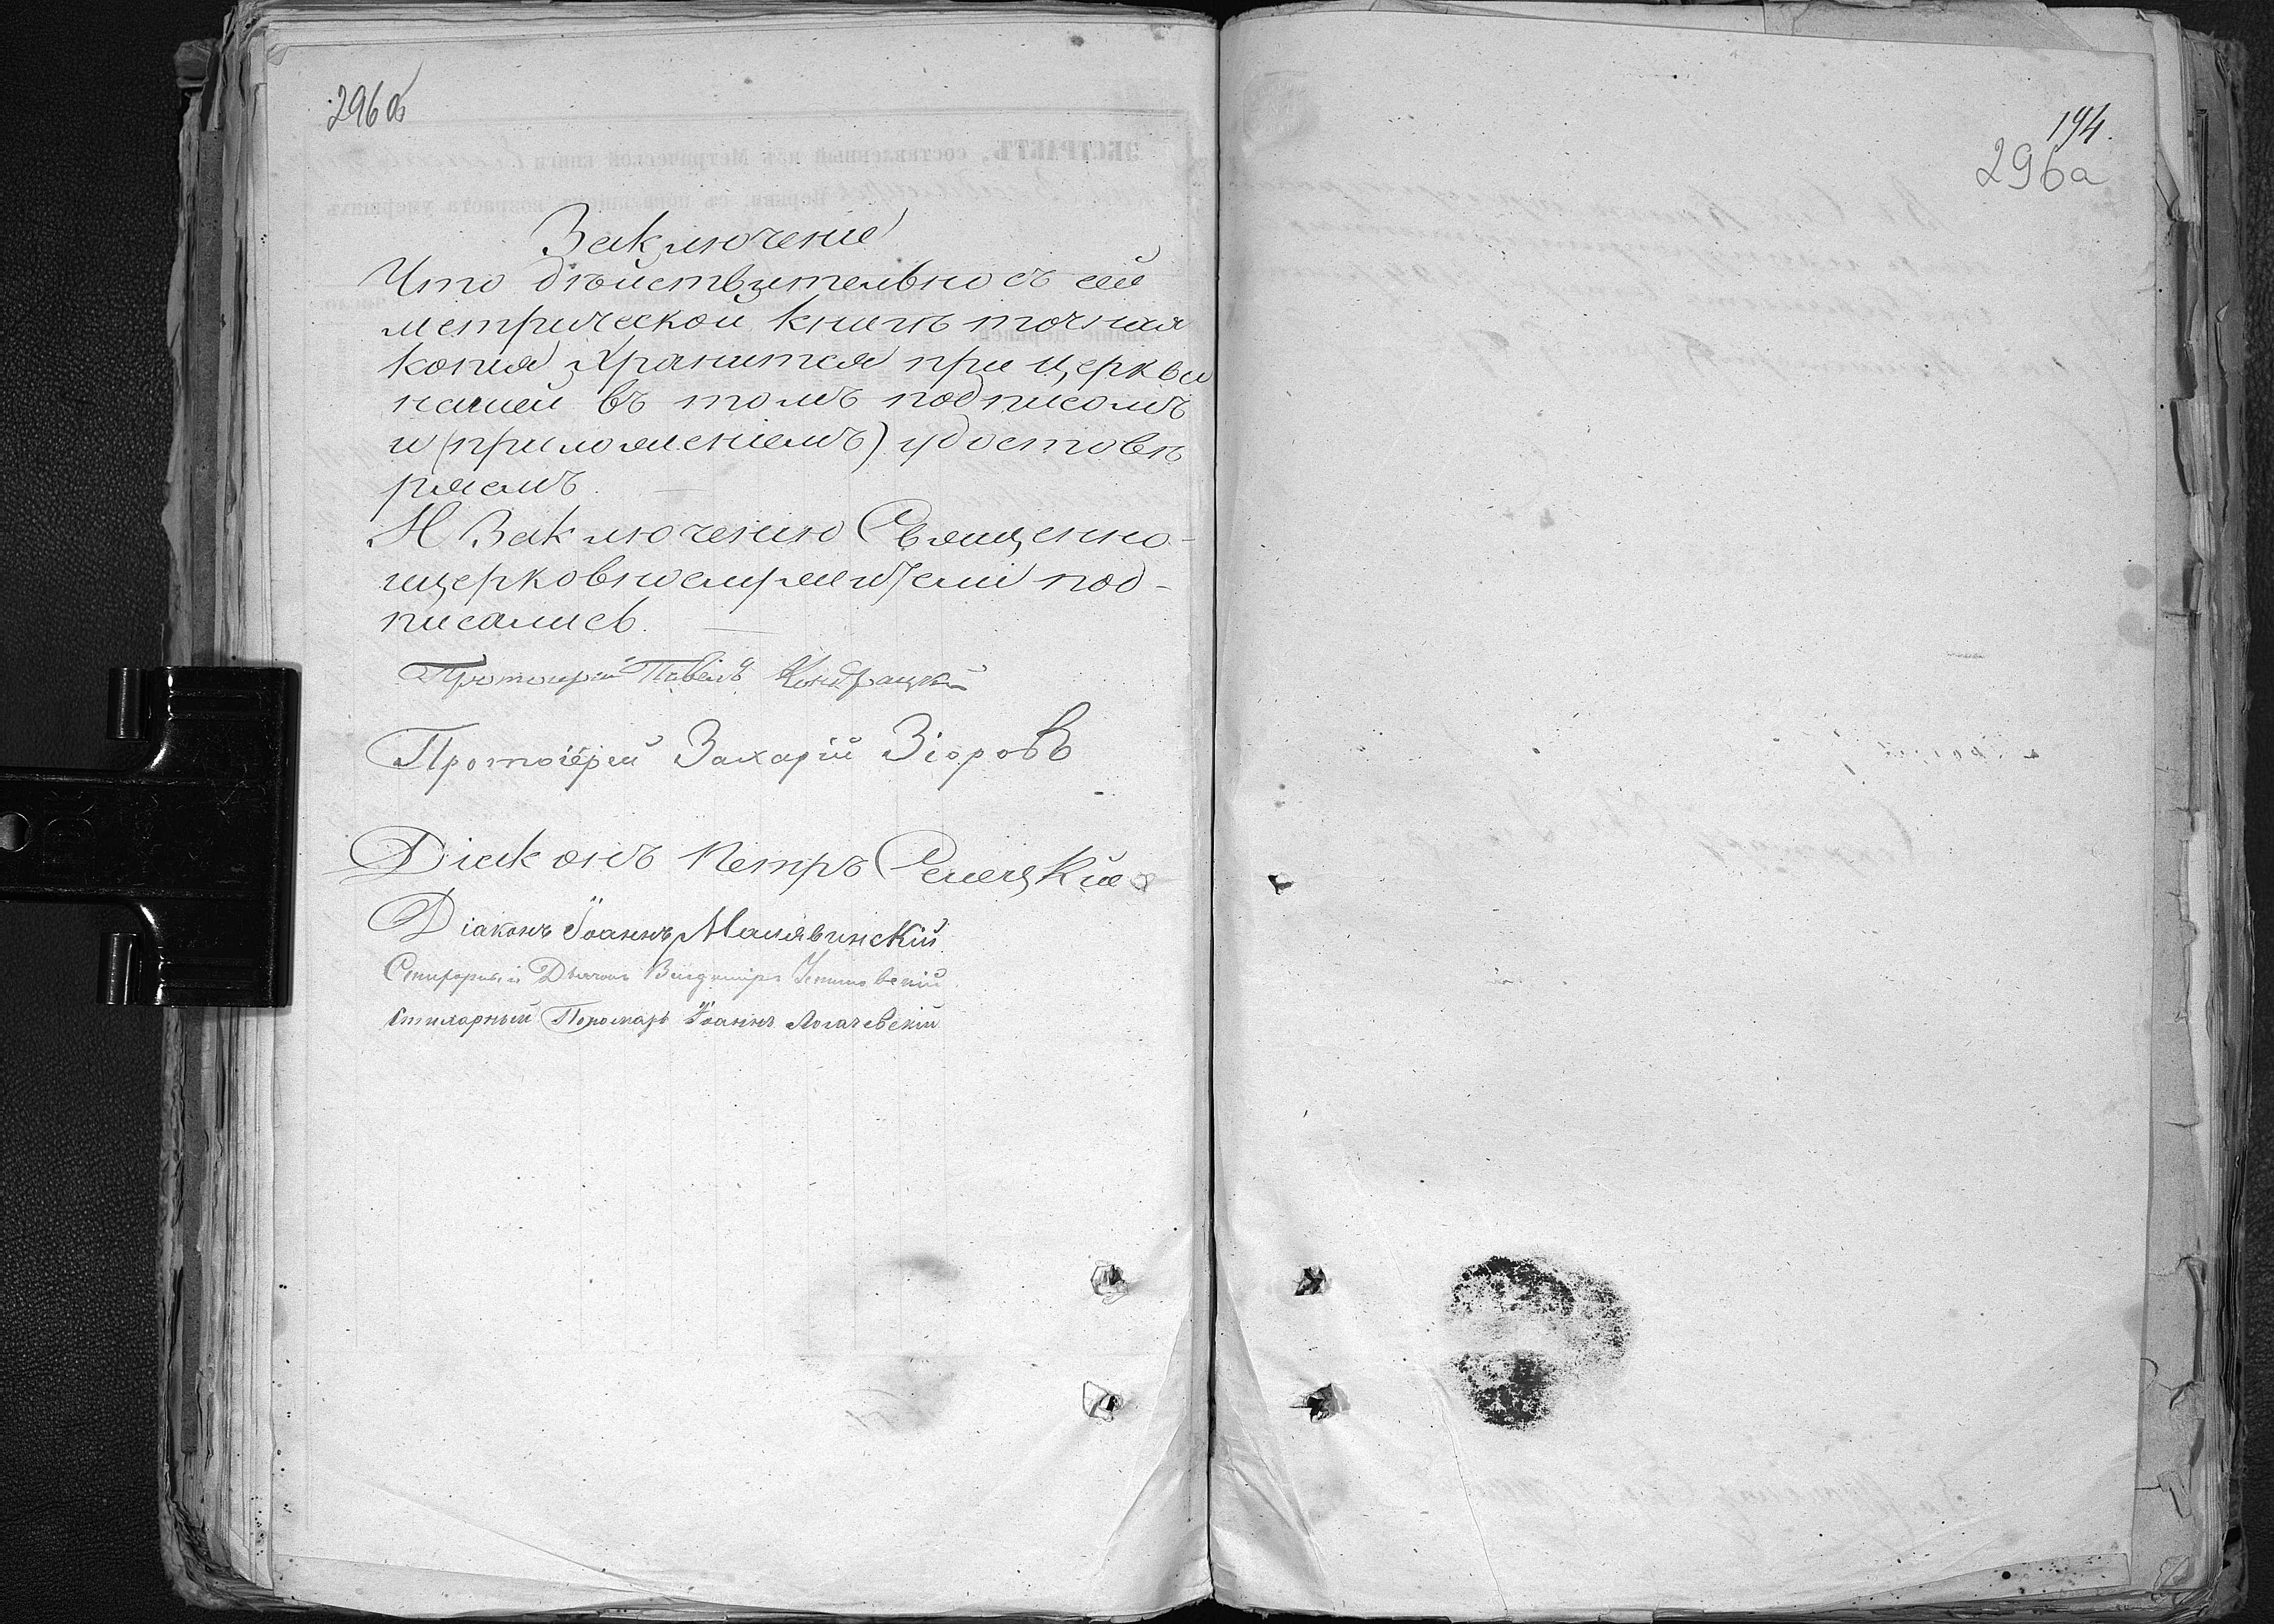 296об
Заключение
Что дѣйствительно съ сей
метрической книги точная
копия хранится при церкви
нашей въ томъ подписомъ
и (приложеніемъ) удостовѣ
ряемъ.
К Заключению Священно-
ицерковнослужители под-
писались.
Протоиерей Павелъ Кондрацкій
Протоіерей Захарій Зіоровъ
Діаконъ Петръ Селецкій
Діаконъ Іоаннъ Малявинскій
Стихарный Дьячокъ Владимиръ
Стихарный Пономарь Іоаннъ Логачевскій
194.
296а